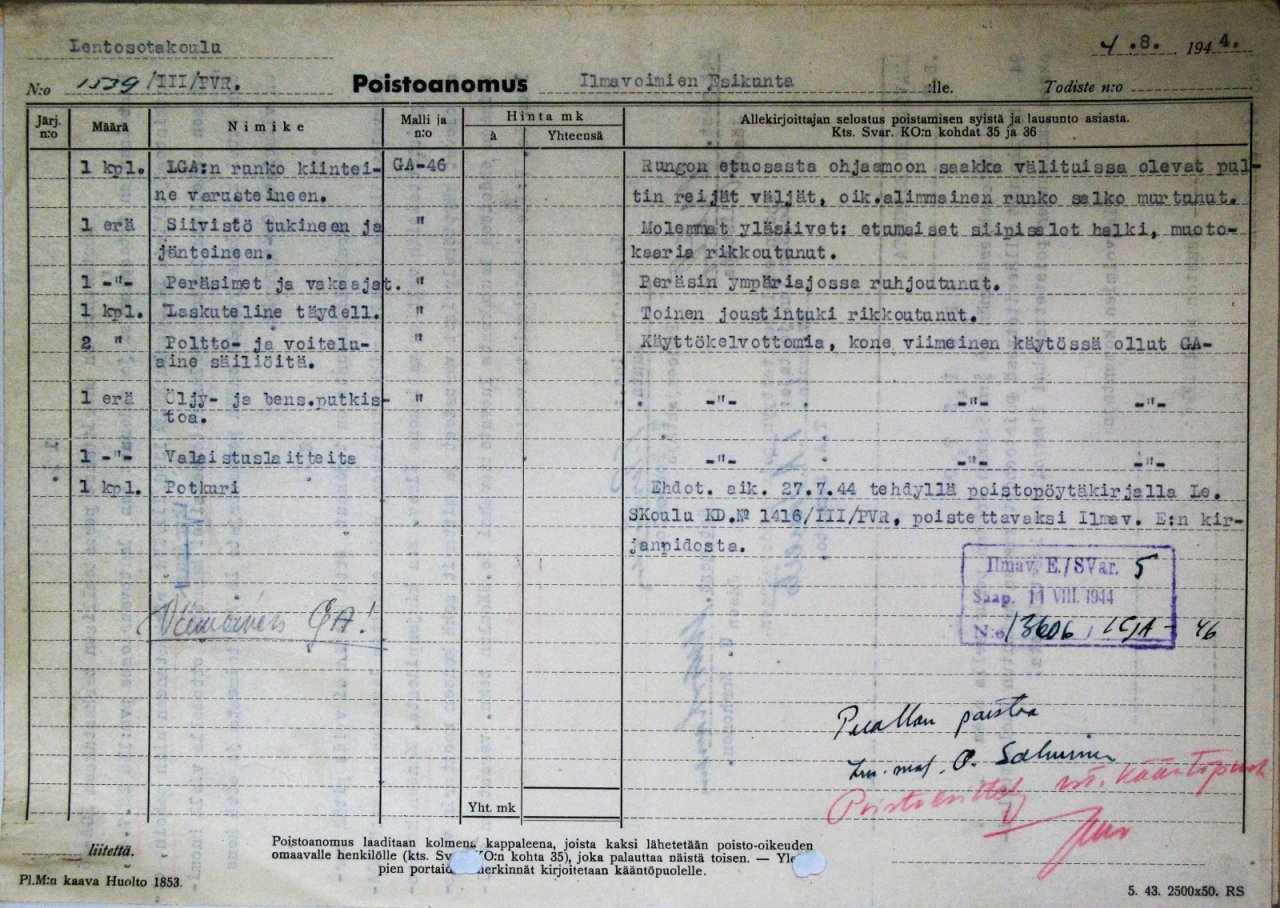 Lentosotakoulu
4.8. 1944.
N:o 1539/III/PVR. Poistoanomus Ilmavoimien Esikunta :lle. Todiste n:o
Järj. n:o Määrä Nimike Malli ja n:o Hinta mk à Yhteensä Allekirjoittajan selostus poistamisen syistä ja lausunto asiasta.
Kts. Svar. KO:n kohdat 35 ja 36
1 kpl. LGA:n runko kiintei- GA-46 Rungon etuosasta ohjaamoon saakka välituissa olevat pul-
ne varusteineen. tin reijät väljät, oik.alimmainen runko salko murtunut.
1 erä Siivistö tukineen ja " Molemmat yläsiivet: etumaiset siipisalot halki, muoto-
jänteineen. kaaria rikkoutunut.
1 -"- Peräsimet ja vakaajat. " Peräsin ympäriajossa ruhjoutunut.
1 kpl. Laskuteline täydell. " Toinen joustintuki rikkoutunut.
2 " Poltto- ja voitelu- " Käyttökelvottomia, kone viimeinen käytössä ollut GA-
aine säiliöitä.
1 erä Öljy- ja bens.putkis- " -"- -"- -"-
toa.
1 -"- Valaistuslaitteita -"- -"- -"-
1 kpl. Potkuri Ehdot. aik. 27.7.44 tehdyllä poistopöytäkirjalla Le.
SKoulu KD.№ 1416/III/PVR, poistettavaksi Ilmav. E:n kir-
janpidosta.
Ilmav. E./SVar. 5
Saap. 11 VIII. 1944
N:o 13606 / LGA - 46
Viimeinen GA!
poistaa
O. Salminen
kääntöpuol
Yht. mk
liitettä.
Poistoanomus laaditaan kolmena kappaleena, joista kaksi lähetetään poisto-oikeuden
omaavalle henkilölle (kts. Sv KO:n kohta 35), joka palauttaa näistä toisen. — Yle
pien portaid merkinnät kirjoitetaan kääntöpuolelle.
Pl.M:n kaava Huolto 1853.
5. 43. 2500x50. RS